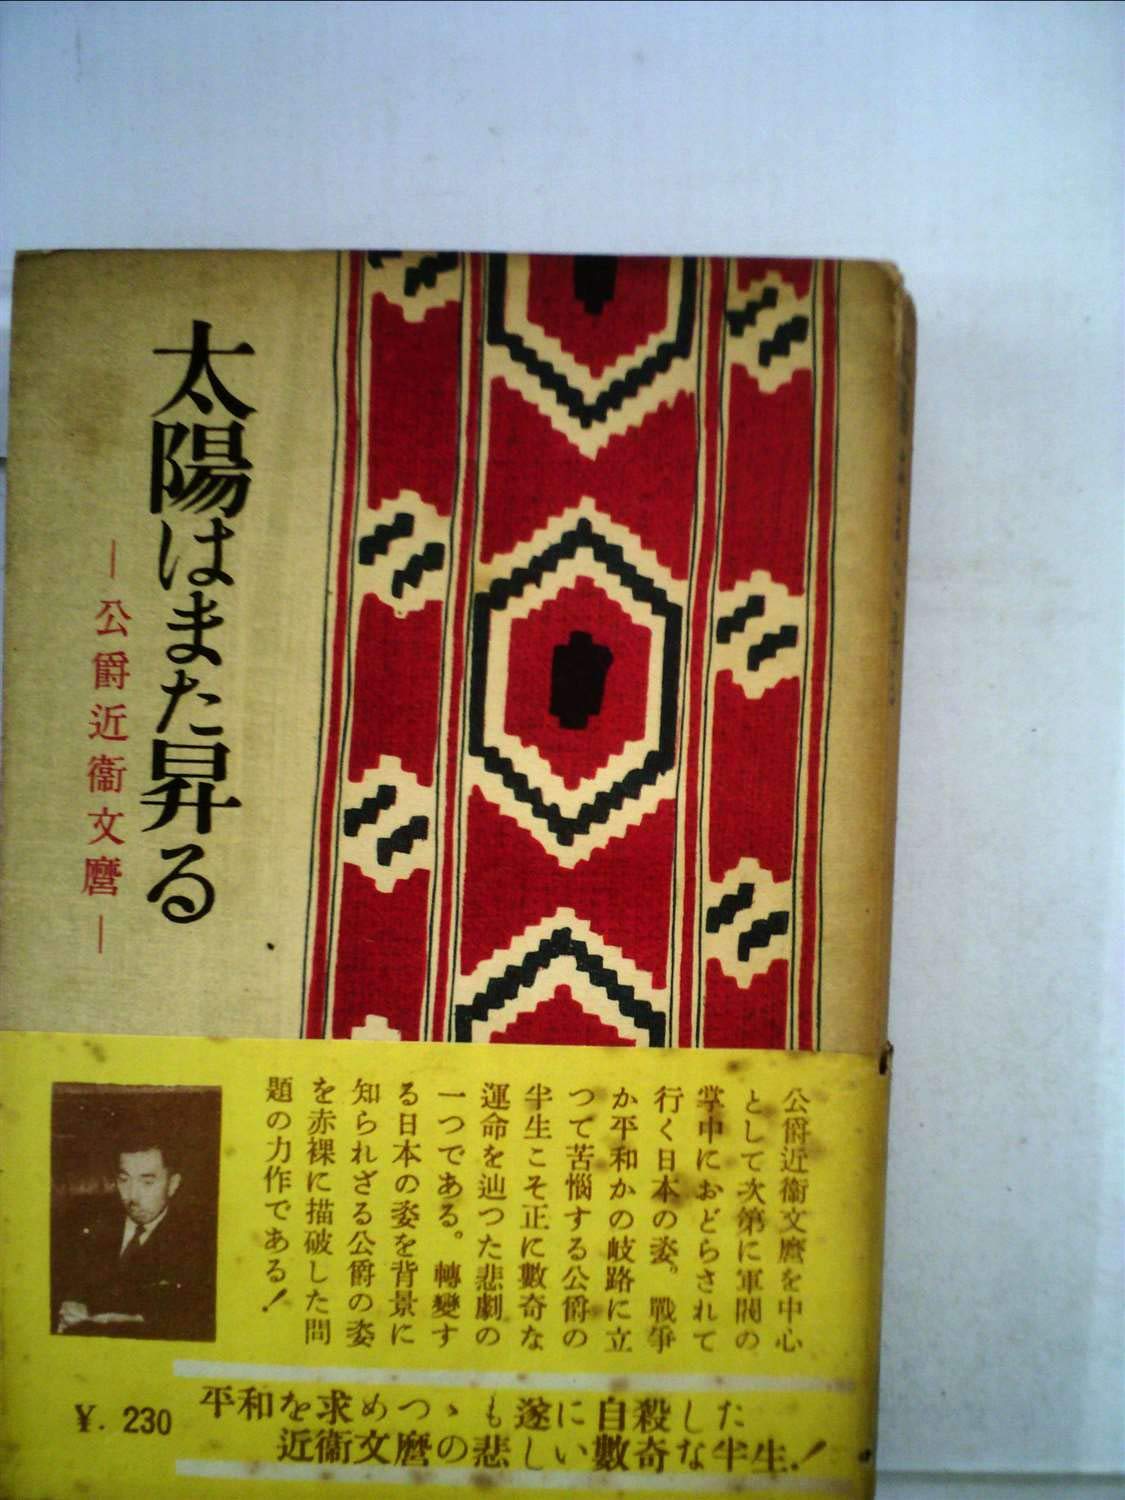 太陽はまた昇る
―公爵近衞文麿―
公爵近衞文麿を中心
として次第に軍閥の
掌中におどらされて
行く日本の姿。戰爭
か平和かの岐路に立
つて苦惱する公爵の
半生こそ正に數奇な
運命を辿つた悲劇の
一つである。轉變す
る日本の姿を背景に
知られざる公爵の姿
を赤裸に描破した問
題の力作である！
¥. 230
平和を求めつゝも遂に自殺した
近衞文麿の悲しい數奇な半生！